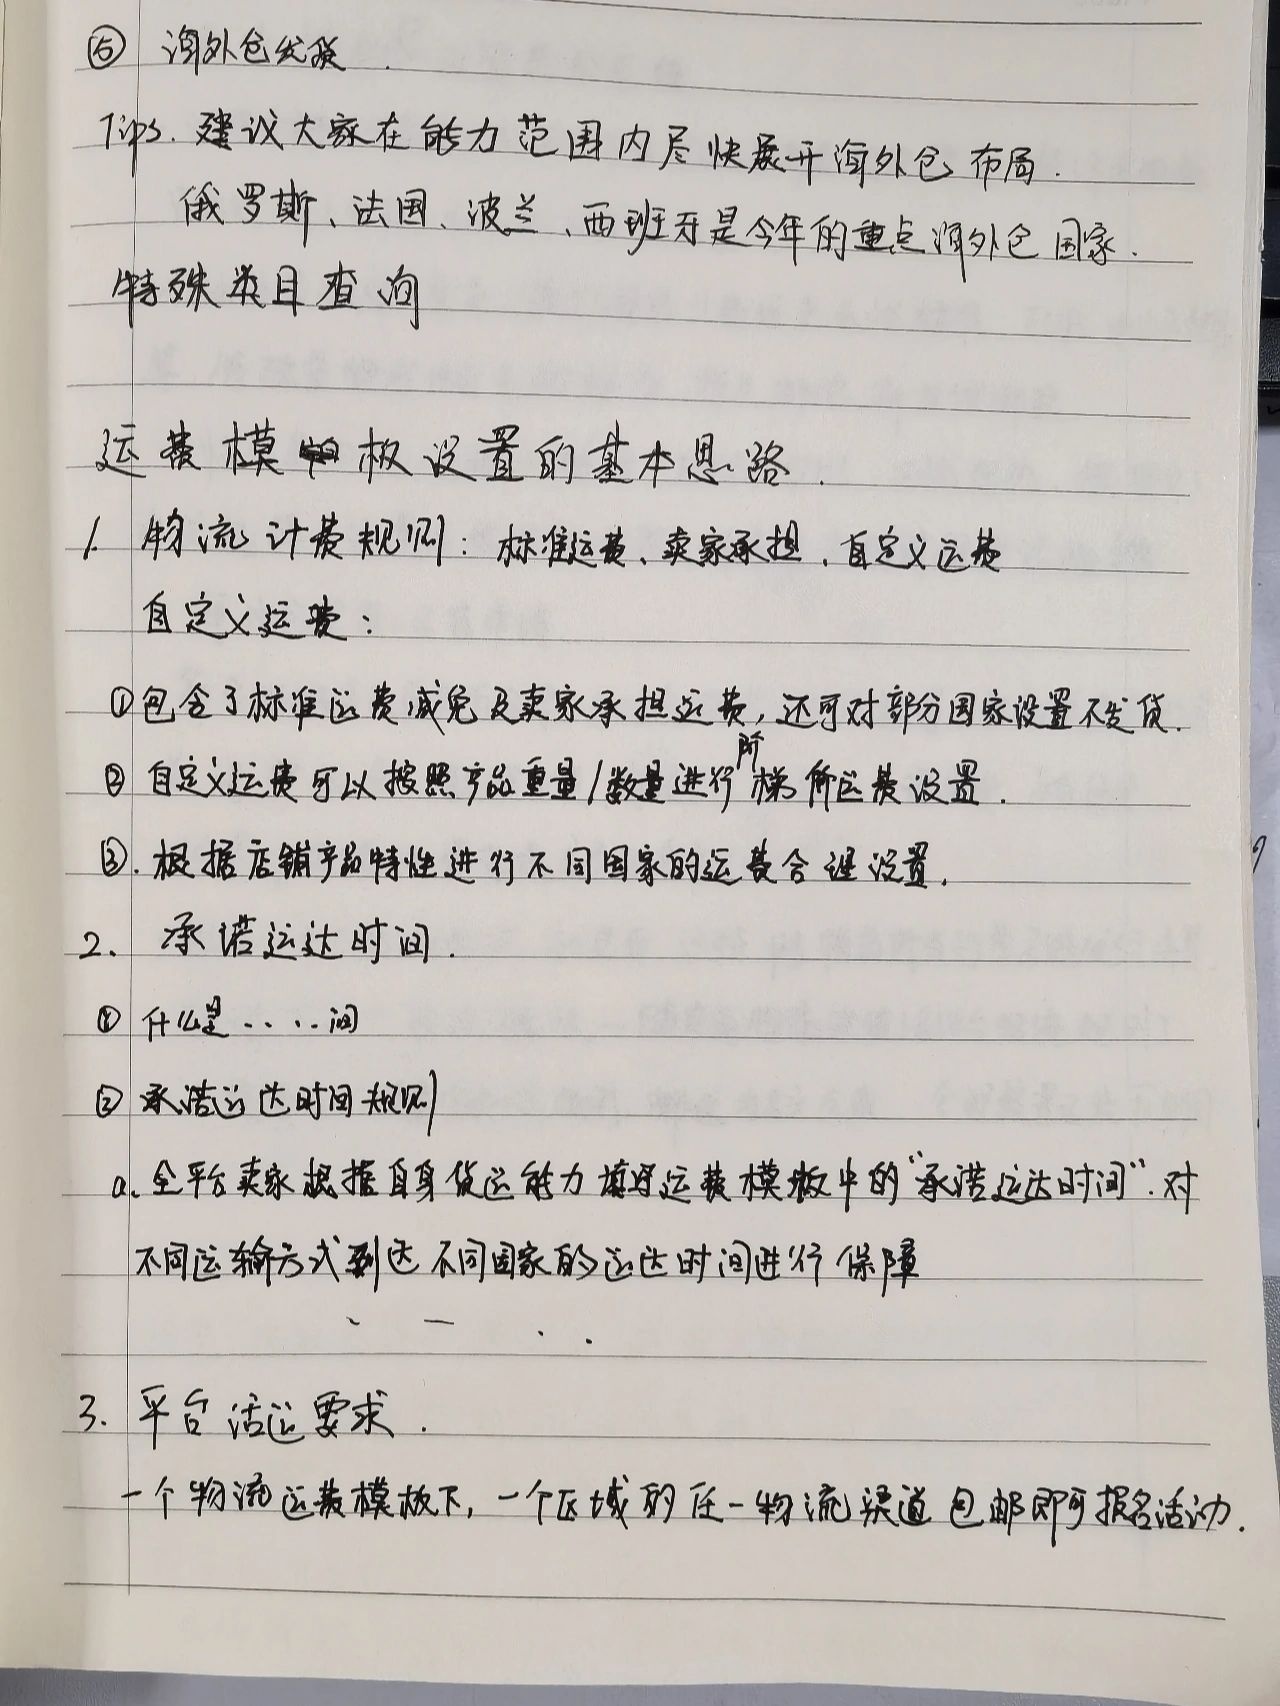 ⑤ 海外仓发货.
Tips. 建议大家在能力范围内尽快展开海外仓布局.
俄罗斯、法国、波兰、西班牙是今年的重点海外仓国家.
特殊类目查询
运费模板设置的基本思路.
1. 物流计费规则: 标准运费、卖家承担、自定义运费
自定义运费:
①包含了标准运费减免及卖家承担运费,还可对部分国家设置不发货.
② 自定义运费可以按照产品重量/数量进行阶梯价运费设置.
③.根据店铺产品特性进行不同国家的运费合理设置.
2. 承诺运达时间.
① 什么是....间
② 承诺运达时间规则
a、全平台卖家根据自身货运能力填写运费模板中的“承诺运达时间”.对
不同运输方式到达不同国家的运达时间进行保障
3. 平台活运要求.
一个物流运费模板下,一个区域的任一物流渠道包邮即可报名活动.